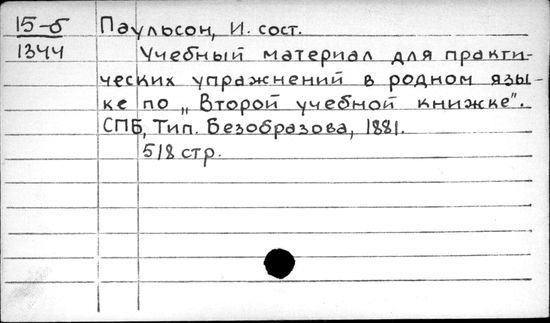 15-б Паульсон, И. сост.
1344 Учебный материал для практи-
ческих упражнений в родном язы-
ке по „Второй учебной книжке".
СПБ, Тип. Безобразова, 1881.
518 стр.